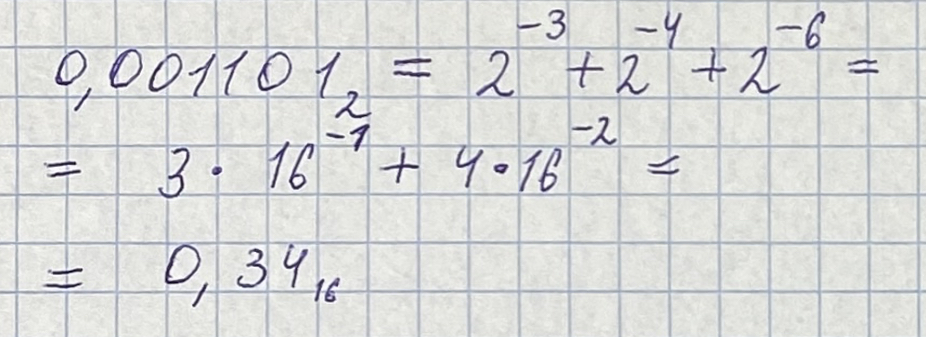 0,001101₂ = 2⁻³ + 2⁻⁴ + 2⁻⁶ =
= 3 · 16⁻¹ + 4 · 16⁻² =
= 0,34₁₆